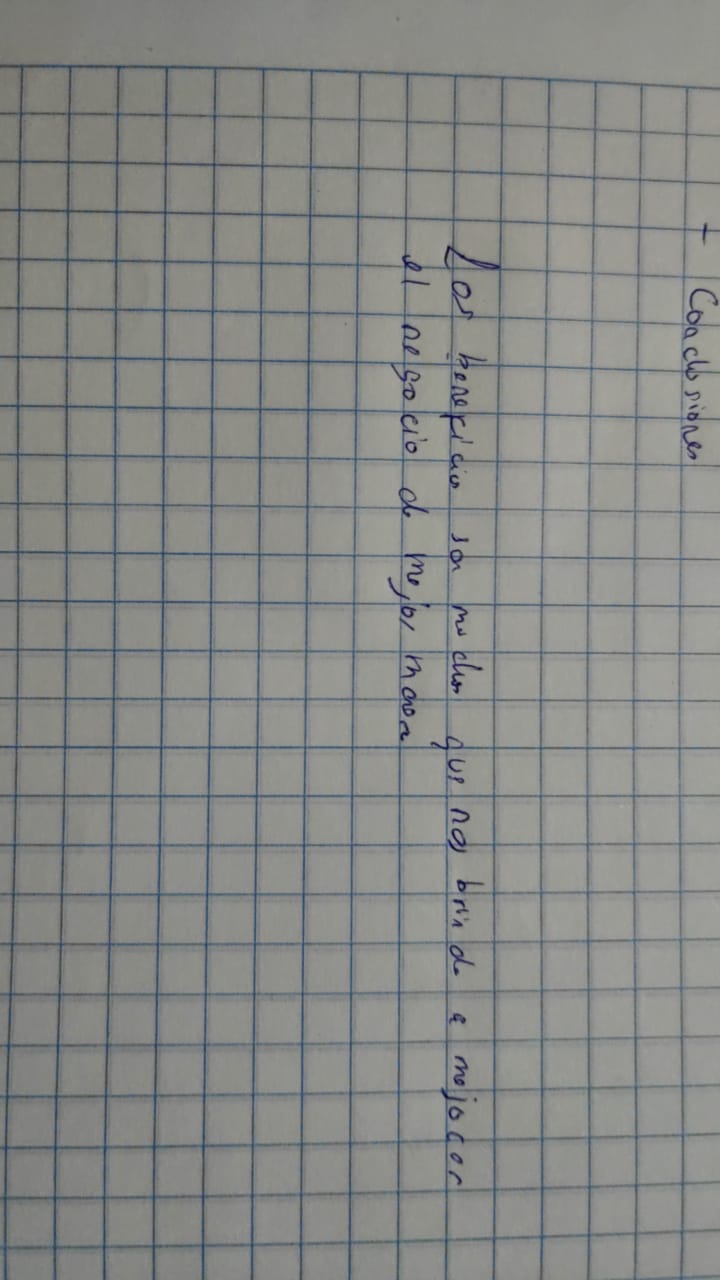 + Conclusiones
Los beneficios son muchos que nos brinda a mejorar
el negocio de mejor manera